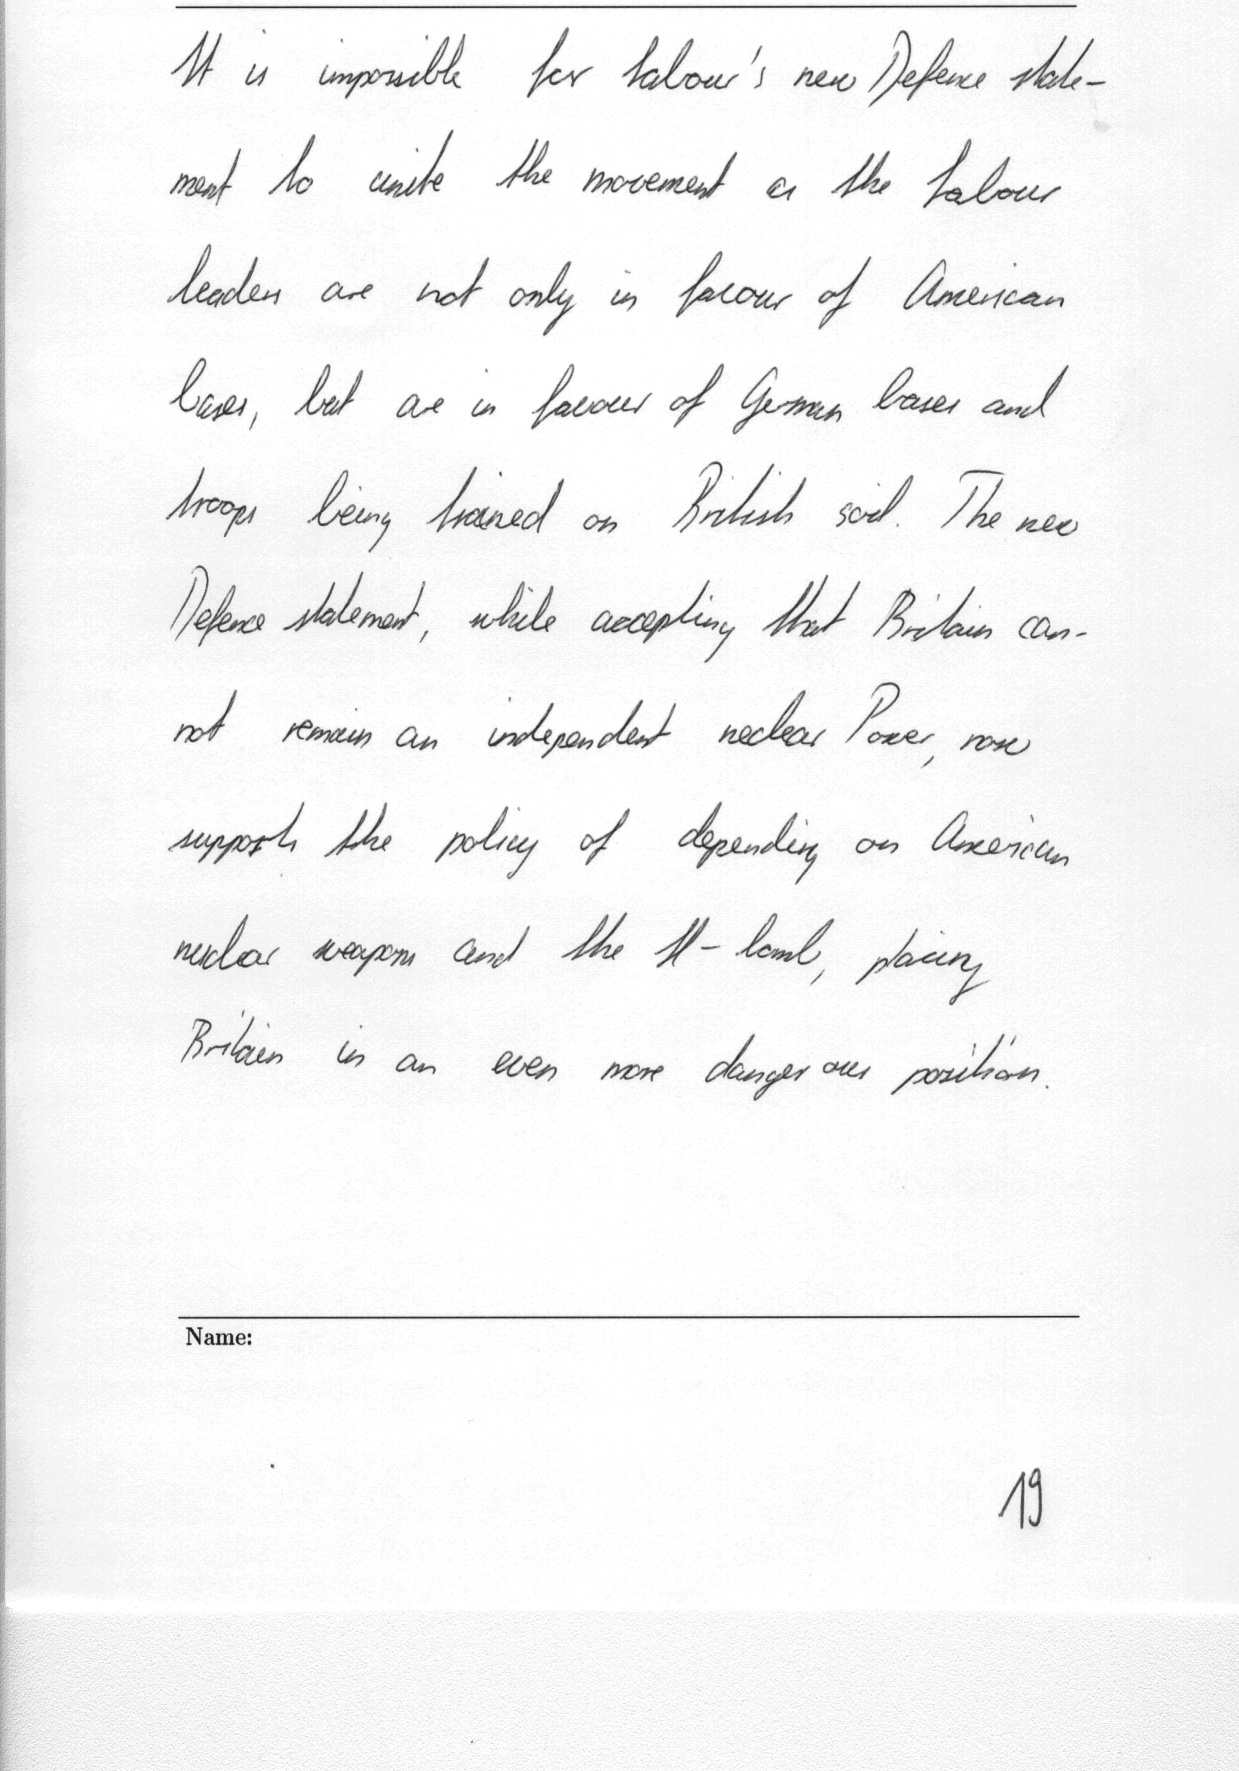 It is impossible for Labour's new Defence state-
ment to unite the movement as the Labour
leaders are not only in favour of American
bases, but are in favour of German bases and
troops being trained on British soil. The new
Defence statement, while accepting that Britain can-
not remain an independent nuclear Power, now
supports the policy of depending on American
nuclear weapons and the H-bomb, placing
Britain in an even more dangerous position.
Name:
19